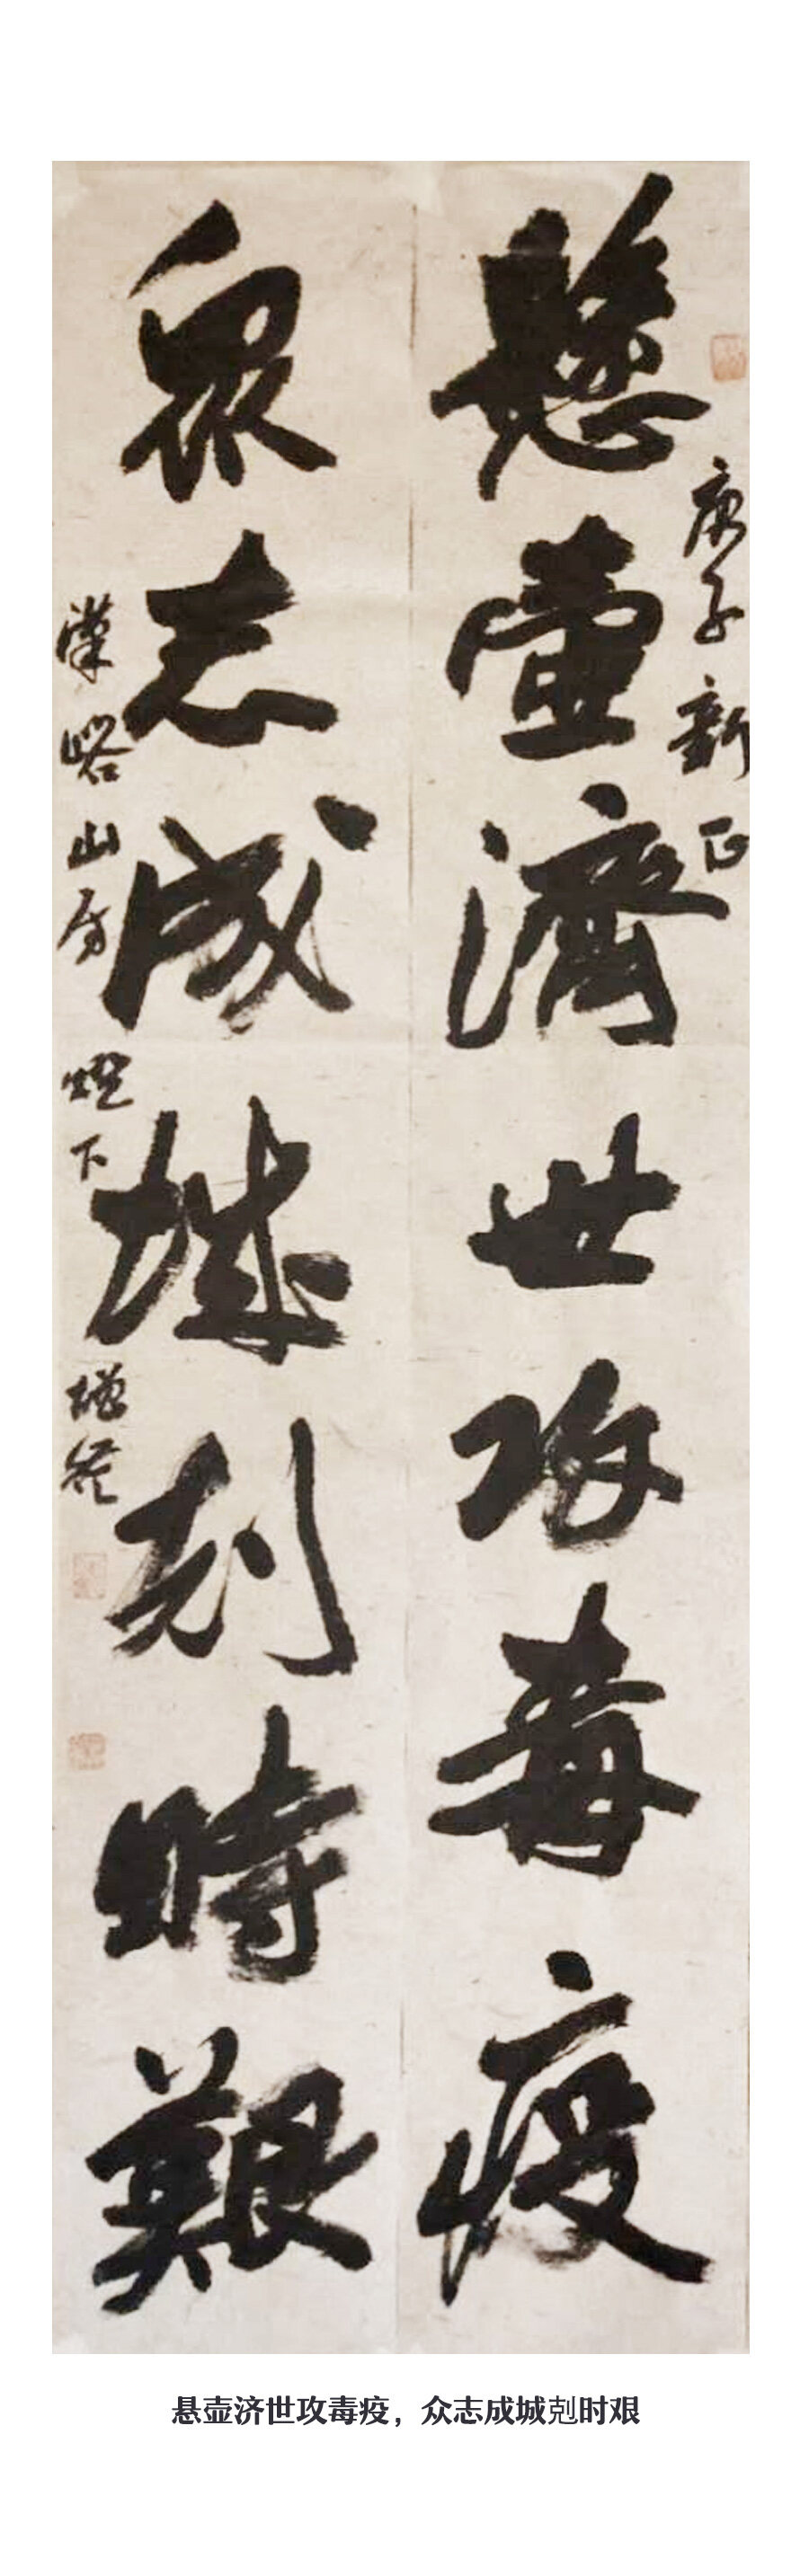 庚子新正
懸壺濟世攻毒疫
衆志成城剋時艱
漢
山房燈下
悬壶济世攻毒疫，众志成城剋时艰